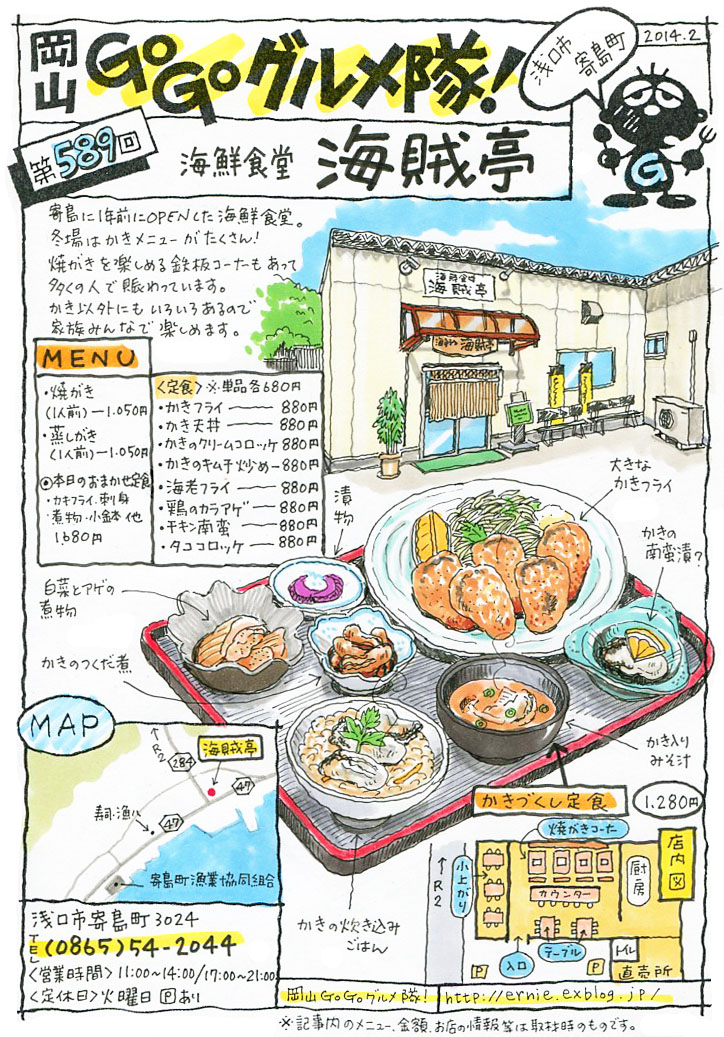 岡山 GoGoグルメ隊!
浅口市
寄島町
2014.2
第589回
海鮮食堂 海賊亭
寄島に1年前にOPENした海鮮食堂。
冬場はかきメニューがたくさん!
焼がきを楽しめる鉄板コーナーもあって
多くの人で賑わっています。
かき以外にもいろいろあるので
家族みんなで楽しめます。
海鮮食堂
海賊亭
海賊亭
G
MENU
・焼がき
(1人前)ー1.050円
・蒸しがき
(1人前)ー1.050円
◎本日のおまかせ定食
・カキフライ・刺身
・煮物・小鉢 他
1.680円
<定食>※単品各680円
・かきフライ ー 880円
・かき天丼 ー 880円
・かきのクリームコロッケ 880円
・かきのキムチ炒めー880円
・海老フライ ー 880円
・鶏のカラアゲ ー 880円
・チキン南蛮 ー 880円
・タココロッケ ー 880円
漬物
大きな
かきフライ
かきの
南蛮漬?
白菜とアゲの
煮物
かきのつくだ煮
かき入り
みそ汁
かきづくし定食
1.280円
かきの炊き込み
ごはん
MAP
R2
284
海賊亭
47
寿司・漁八
47
寄島町漁業協同組合
焼がきコーナー
店内図
R2
小上がり
カウンター
厨房
テーブル
入口
トイレ
P
P
直売所
浅口市寄島町3024
TEL(0865)54-2044
<営業時間>11:00~14:00/17:00~21:00
<定休日>火曜日 Pあり
岡山GoGoグルメ隊! http://ernie.exblog.jp/
※記事内のメニュー、金額、お店の情報等は取材時のものです。